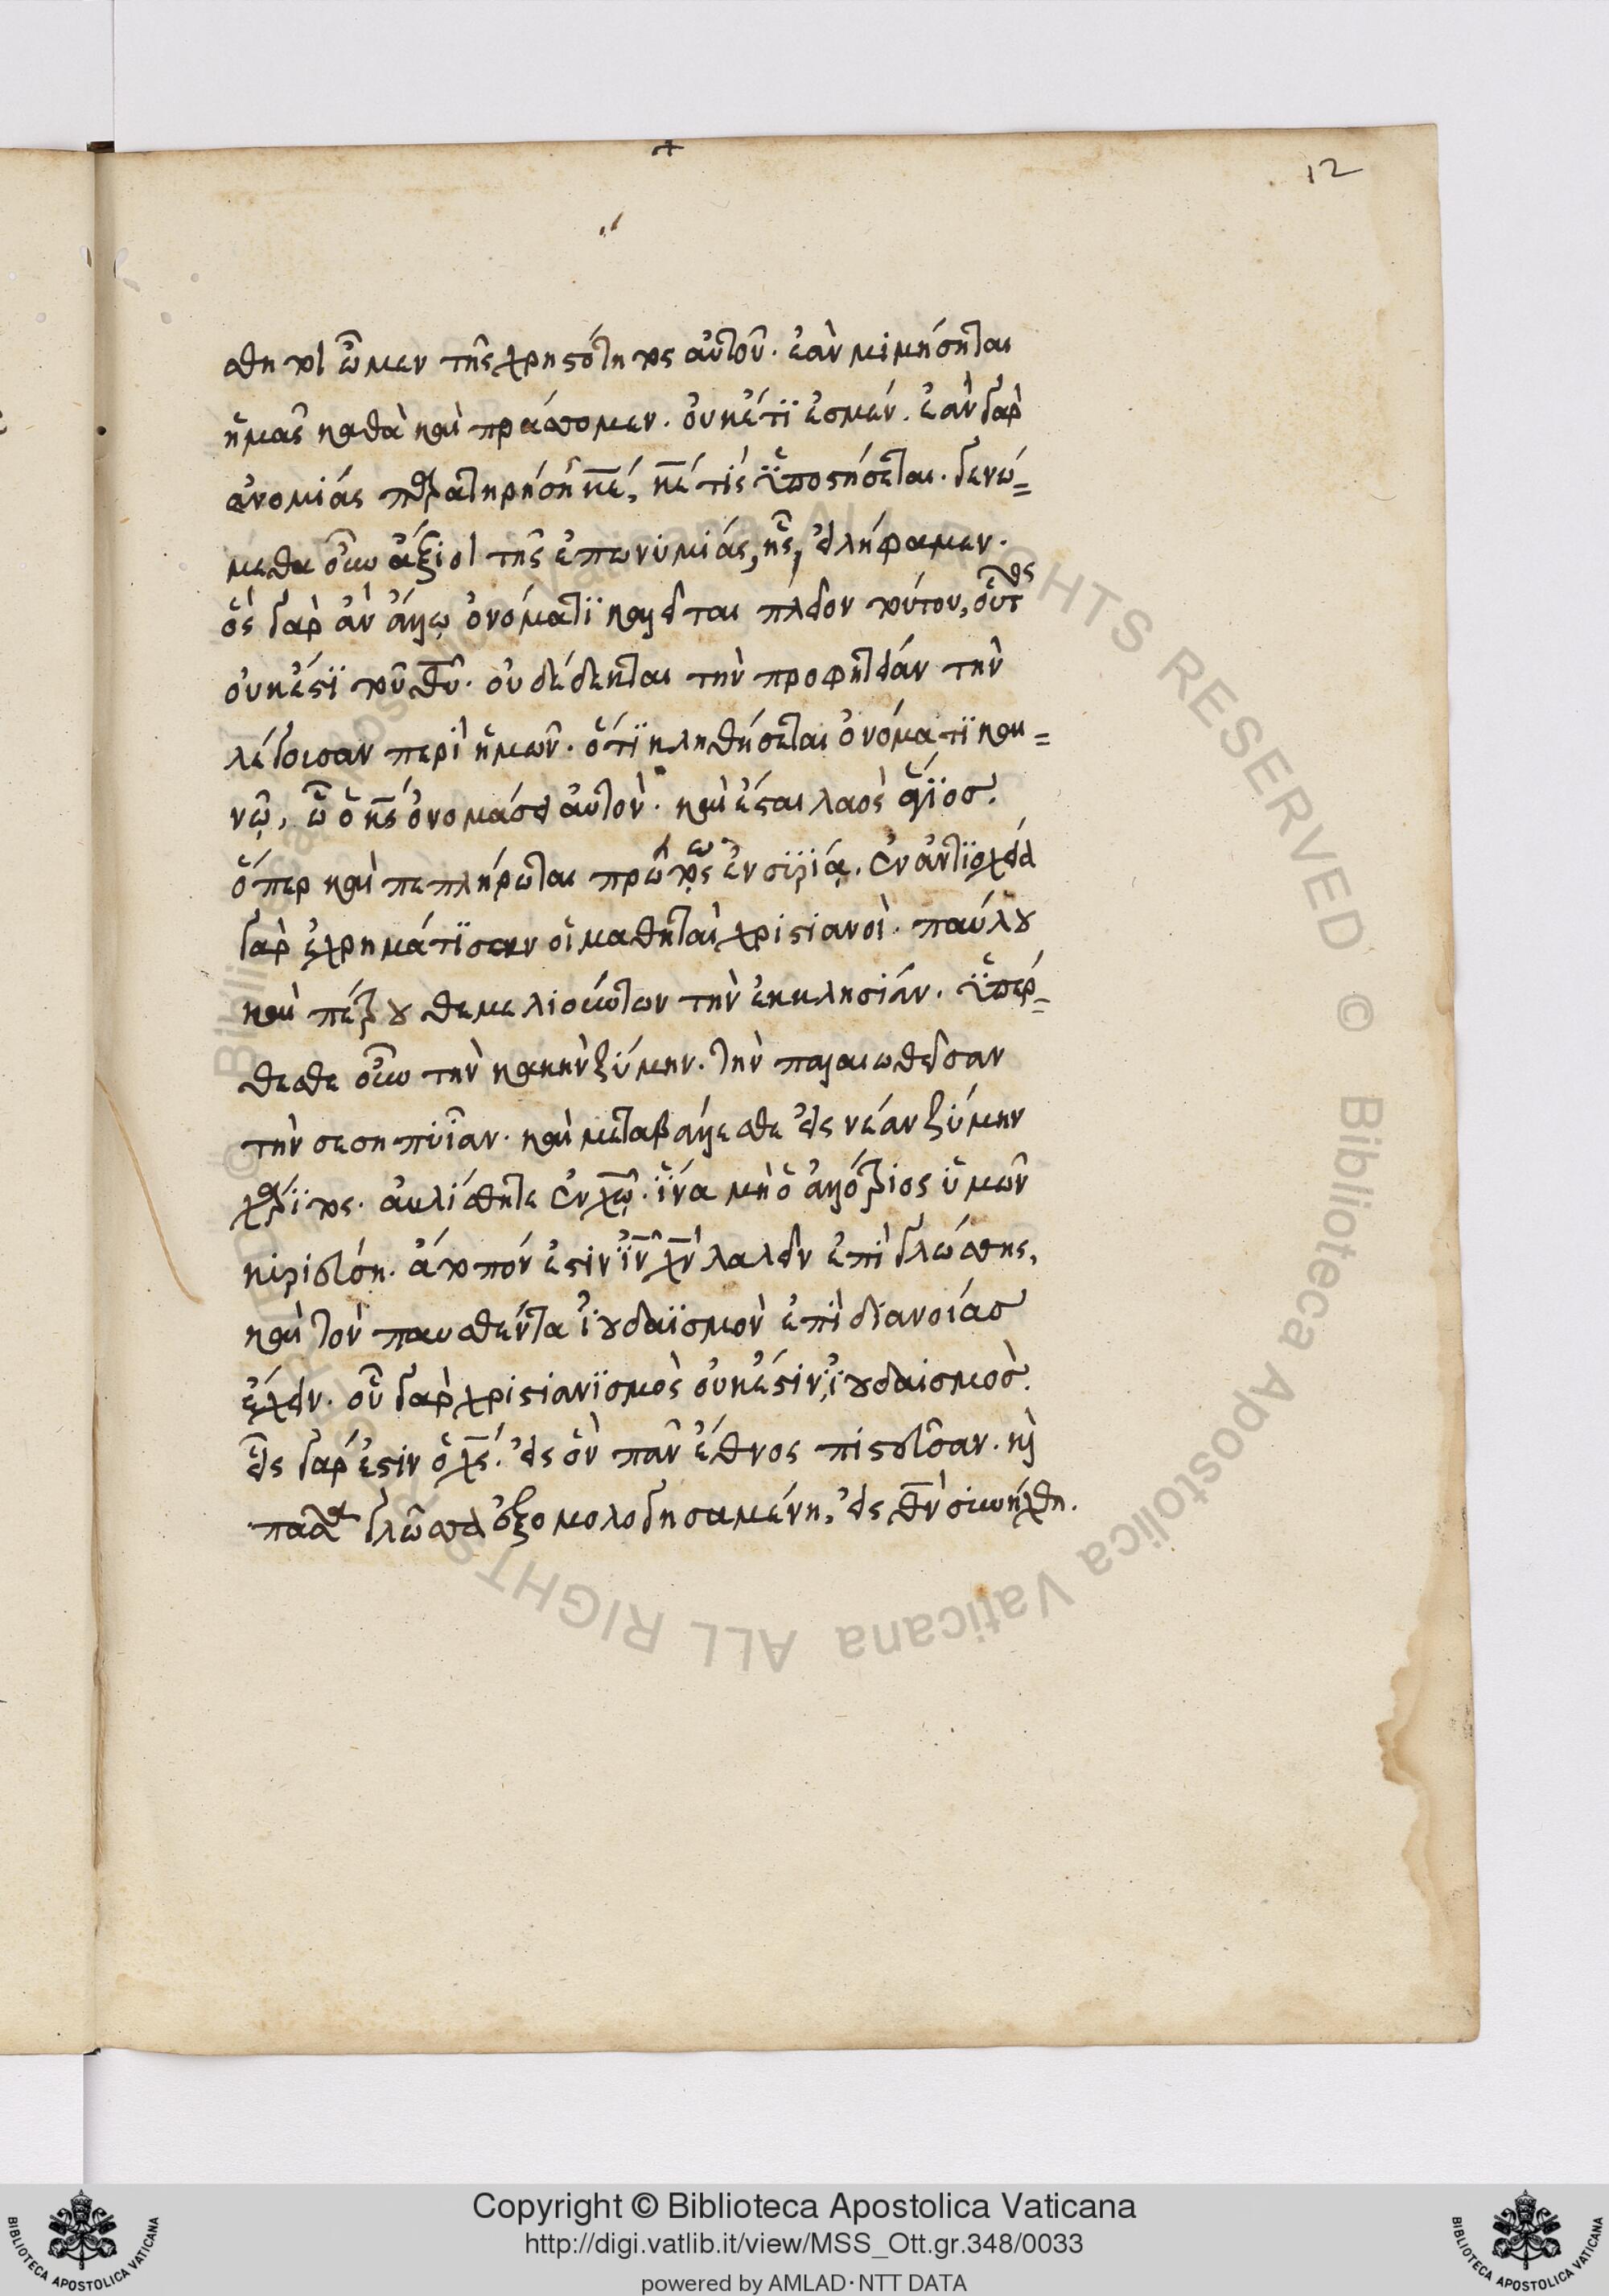 12
σθητοι ὦμεν τῆς χρηστότητος αὐτοῦ. ἐὰν μιμήσηται
ἡμᾶς καθὰ καὶ πράσσομεν. οὐκέτι ἐσμέν. ἐὰν γὰρ
ἀνομίας παρατηρήσῃ κ̅ε̅, κ̅ε̅ τίς ὑποστήσεται. γενώ=
μεθα οὖν ἄξιοι τῆς ἐπωνυμίας, ἧς, εἰλήφαμεν.
ὃς γὰρ ἂν ἄλλῳ ὀνόματι καλεῖται πλεῖον τούτου, οὗτος
οὐκ ἔστι τοῦ θ̅υ̅. οὐ δέδεκται τὴν προφητείαν τὴν
λέγουσαν περὶ ἡμῶν. ὅτι κληθήσεται ὀνόματι και=
νῷ, ᾧ ὁ κ̅ς̅ ὀνομάσει αὐτόν. καὶ ἔσται λαὸς ἅγιος.
ὅπερ καὶ πεπλήρωται πρώτως ἐν συρίᾳ. ἐν ἀντιοχείᾳ
γὰρ ἐχρημάτισαν οἱ μαθηταὶ χριστιανοί. παύλου
καὶ πέτρου θεμελιούντων τὴν ἐκκλησίαν. ὑπέρ=
θεσθε οὖν τὴν κακὴν ζύμην. τὴν παλαιωθεῖσαν
τὴν σεσηπυῖαν. καὶ μεταβάλλεσθε εἰς νέαν ζύμην
χάριτος. αὐλίσθητε ἐν χ̅ῳ̅. ἵνα μὴ ὁ ἀλλότριος ὑμῶν
κυριεύσῃ. ἄτοπόν ἐστιν ἰ̅ν̅ χ̅ν̅ λαλεῖν ἐπὶ γλώσσης,
καὶ τὸν παυσθέντα ἰουδαϊσμὸν ἐπὶ διανοίας
ἔχειν. οὗ γὰρ χριστιανισμὸς οὐκ ἔστιν, ἰουδαισμός.
εἷς γάρ ἐστιν ὁ χ̅ς̅. εἰς ὃν πᾶν ἔθνος πιστεῦσαν. κὶ
πᾶσα γλῶσσα ἐξομολογησαμένη, εἰς θ̅ν̅ συνήχθη.
© Biblioteca Apostolica Vaticana ALL RIGHTS RESERVED © Biblioteca Apostolica Vaticana ALL RIGHTS RESERVED
BIBLIOTECA APOSTOLICA VATICANA
Copyright © Biblioteca Apostolica Vaticana
http://digi.vatlib.it/view/MSS_Ott.gr.348/0033
powered by AMLAD·NTT DATA
BIBLIOTECA APOSTOLICA VATICANA